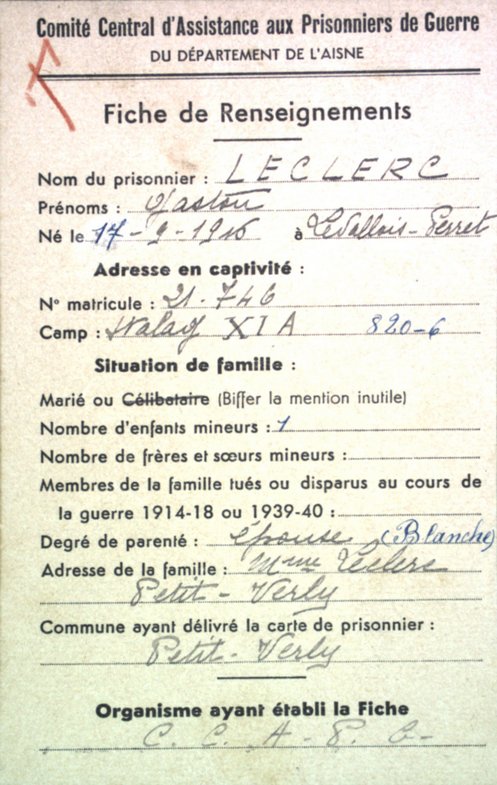 Comité Central d'Assistance aux Prisonniers de Guerre
DU DÉPARTEMENT DE L'AISNE
Fiche de Renseignements
Nom du prisonnier : LECLERC
Prénoms : Gaston
Né le 17-9-1916 à Levallois-Perret
Adresse en captivité :
N° matricule : 21.746
Camp : Stalag XI A 820-6
Situation de famille :
Marié ou Célibataire (Biffer la mention inutile)
Nombre d'enfants mineurs : 1
Nombre de frères et sœurs mineurs :
Membres de la famille tués ou disparus au cours de
la guerre 1914-18 ou 1939-40 :
Degré de parenté : épouse (Blanche)
Adresse de la famille : Mme Leclerc
Petit-Verly
Commune ayant délivré la carte de prisonnier :
Petit-Verly
Organisme ayant établi la Fiche
C. C. A. P. G-